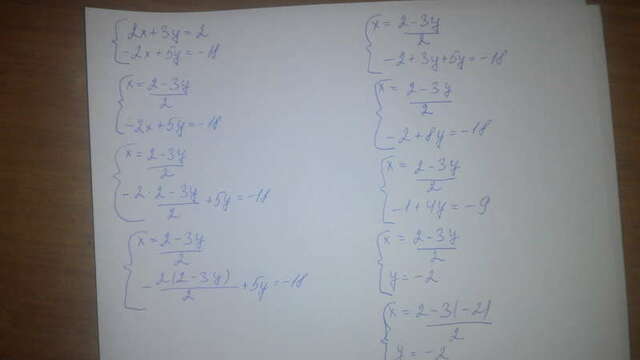 2x+3y=2
-2x+5y=-18
x=2-3y
2
-2x+5y=-18
x=2-3y
2
-2·2-3y+5y=-18
2
x=2-3y
2
-2(2-3y)+5y=-18
2
x=2-3y
2
-2+3y+5y=-18
x=2-3y
2
-2+8y=-18
x=2-3y
2
-1+4y=-9
x=2-3y
2
y=-2
x=2-3(-2)
2
y=-2